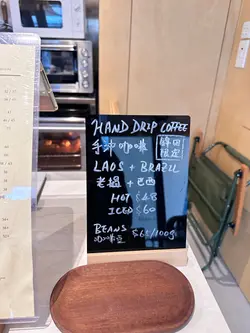 HAND DRIP COFFEE
手沖咖啡
限定
LAOS + BRAZIL
老撾 + 巴西
HOT $48
ICED $60
BEANS
咖啡豆 $65/100g